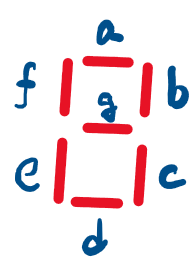 a
f g b
e c
d